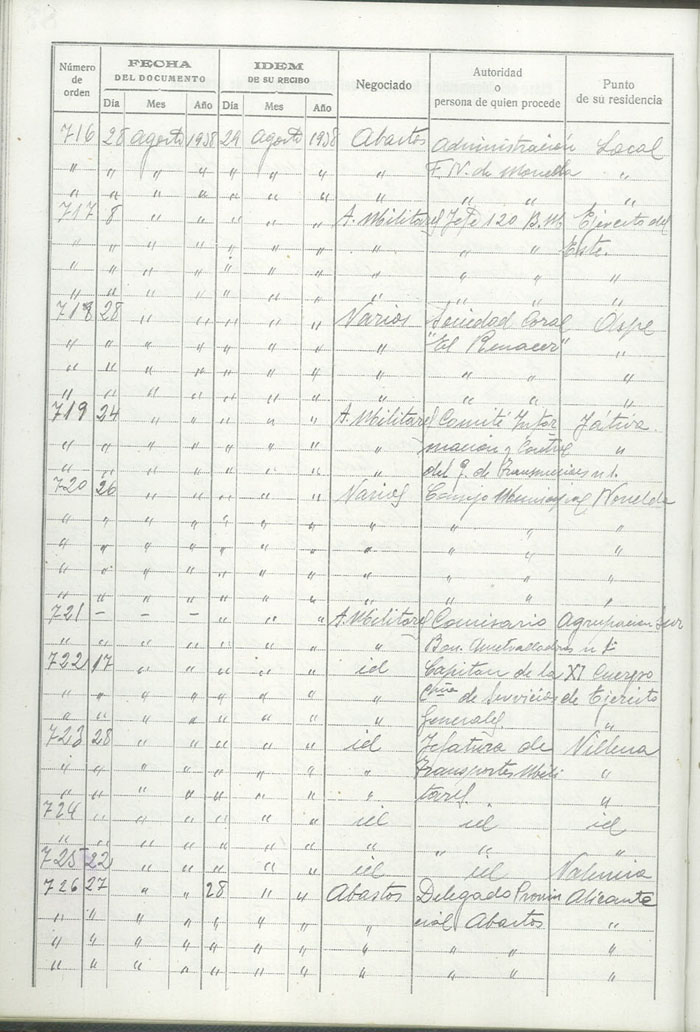 Número de orden | FECHA DEL DOCUMENTO | IDEM DE SU RECIBO | Negociado | Autoridad o persona de quien procede | Punto de su residencia
Dia | Mes | Año | Dia | Mes | Año
716 28 agosto 1938 29 agosto 1938 Abastos Administración Local
" " " " " " " " F. N. de Monelda "
" " " " " " " " " " "
717 8 " " " " " A. Militares Jefe 120 B. M. Ejército del
" " " " " " " " " " Este.
" " " " " " " " " " "
" " " " " " " " " " "
718 28 " " " " " Varios Sociedad Coral Aspe
" " " " " " " " "El Renacer" "
" " " " " " " " " " "
" " " " " " " " " " "
719 24 " " " " " A. Militares Comité Infor Játiva.
" " " " " " " " mación y Control "
" " " " " " " " del g. de Transmisiones n 1.
720 26 " " " " " Varios Consejo Municipal Novelda
" " " " " " " " " " "
" " " " " " " " " " "
" " " " " " " " " " "
" " " " " " " " " " "
721 – – – " " " A. Militares Comisario Agrupación Sur
" " " " " " " " Bon. Ametralladoras n 1º
722 17 " " " " " id Capitan de la XI Cuerpo
" " " " " " " " Cpñia de Servicios de Ejército
" " " " " " " " Generales. "
723 28 " " " " " id Jefatura de Villena
" " " " " " " " Transportes Mili "
" " " " " " " " tares. "
724 " " " " " " id id id
" " " " " " " " " " "
725 22 " " " " " id id Valencia
726 27 " " 28 " " Abastos Delegado Provin Alicante
" " " " " " " " cial Abastos "
" " " " " " " " " " "
" " " " " " " " " " "